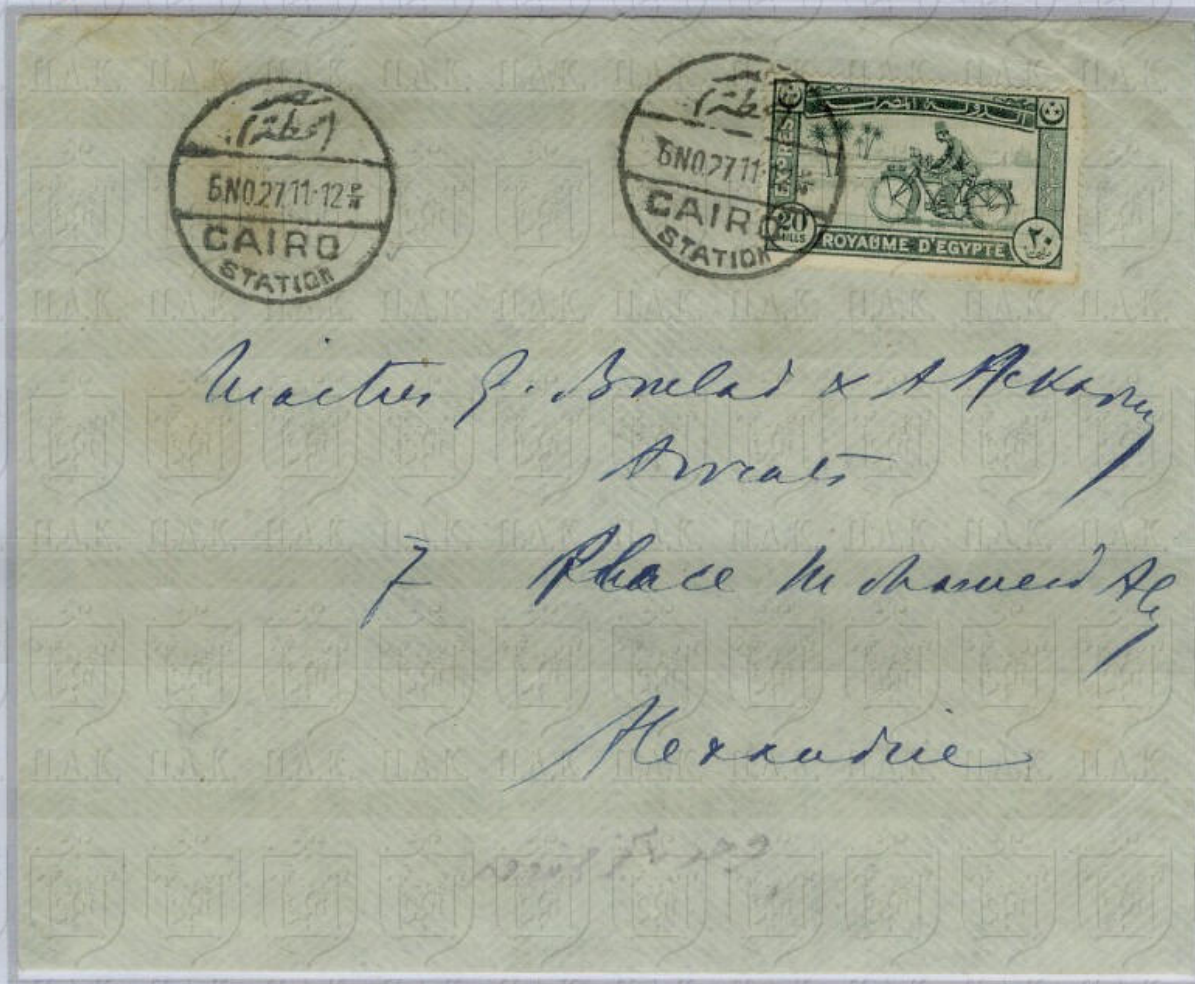 مصر
(محطة)
6NO.27.11-12 PM
CAIRO
STATION
مصر
(محطة)
6NO.27.11
CAIRO
STATION
الدولة المصرية
EXPRES
20
MILLS
ROYAUME D'EGYPTE
٢٠
Maitres G. Boulad & A Ackaouy
Avocats
7 Place Mohamed Aly
Alexandrie